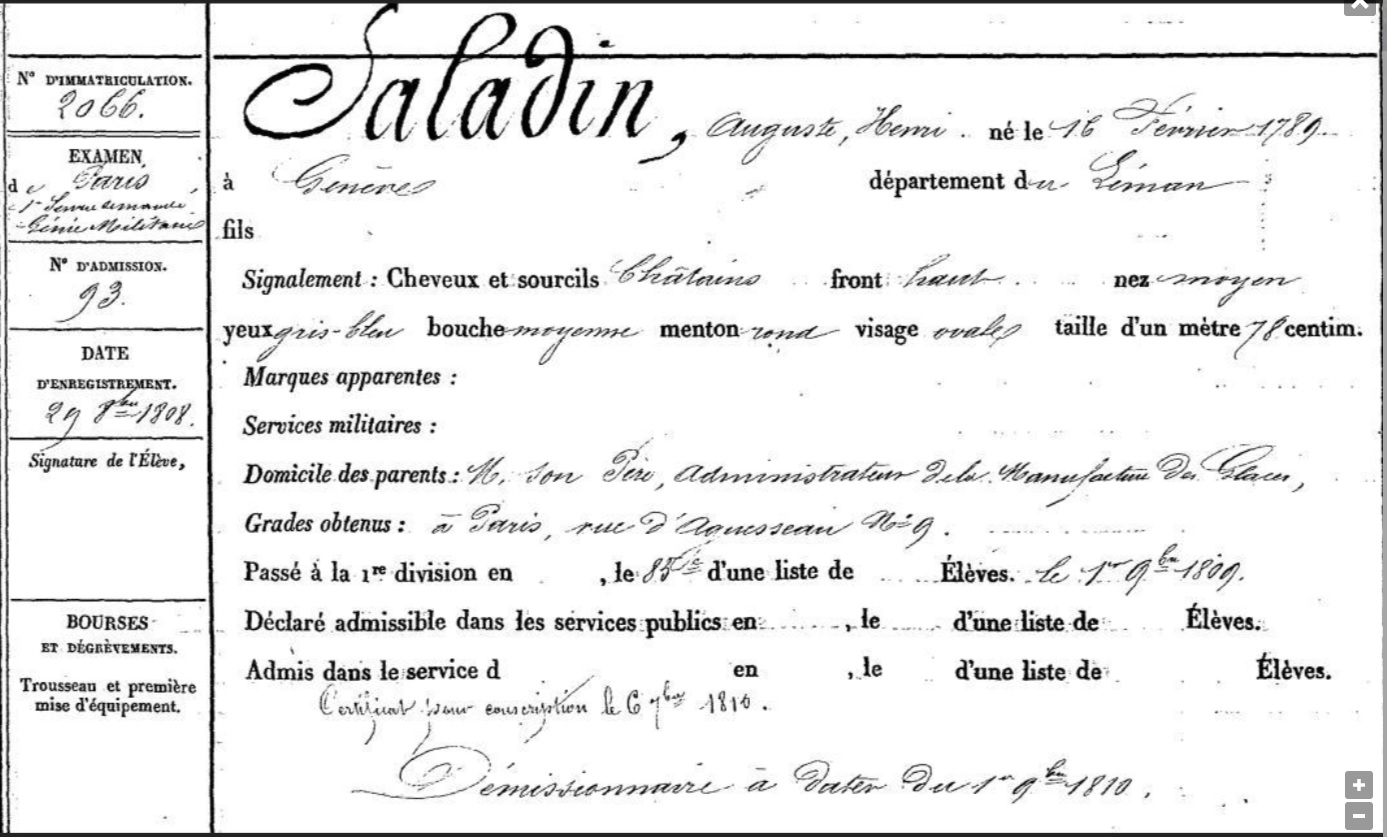 N° D'IMMATRICULATION.
2066.
EXAMEN
de Paris
Génie Militaire
N° D'ADMISSION.
93.
DATE
D'ENREGISTREMENT.
29 8bre 1808.
Signature de l'Élève,
BOURSES
ET DÉGRÈVEMENTS.
Trousseau et première
mise d'équipement.
Saladin, Auguste, Henri. né le 16 Février 1789.
à Genève département du Léman
fils
Signalement : Cheveux et sourcils Châtains front haut nez moyen
yeux gris-bleu bouche moyenne menton rond visage ovale taille d'un mètre 78 centim.
Marques apparentes :
Services militaires :
Domicile des parents : M. son Père, Administrateur de la Manufacture des Glaces,
Grades obtenus : à Paris, rue d'Aguesseau N° 9.
Passé à la 1re division en , le 85e d'une liste de Élèves. le 1er 9bre 1809.
Déclaré admissible dans les services publics en , le d'une liste de Élèves.
Admis dans le service d en , le d'une liste de Élèves.
Certificat pour conscription le 6 7bre 1810.
Démissionnaire à dater du 1er 9bre 1810.